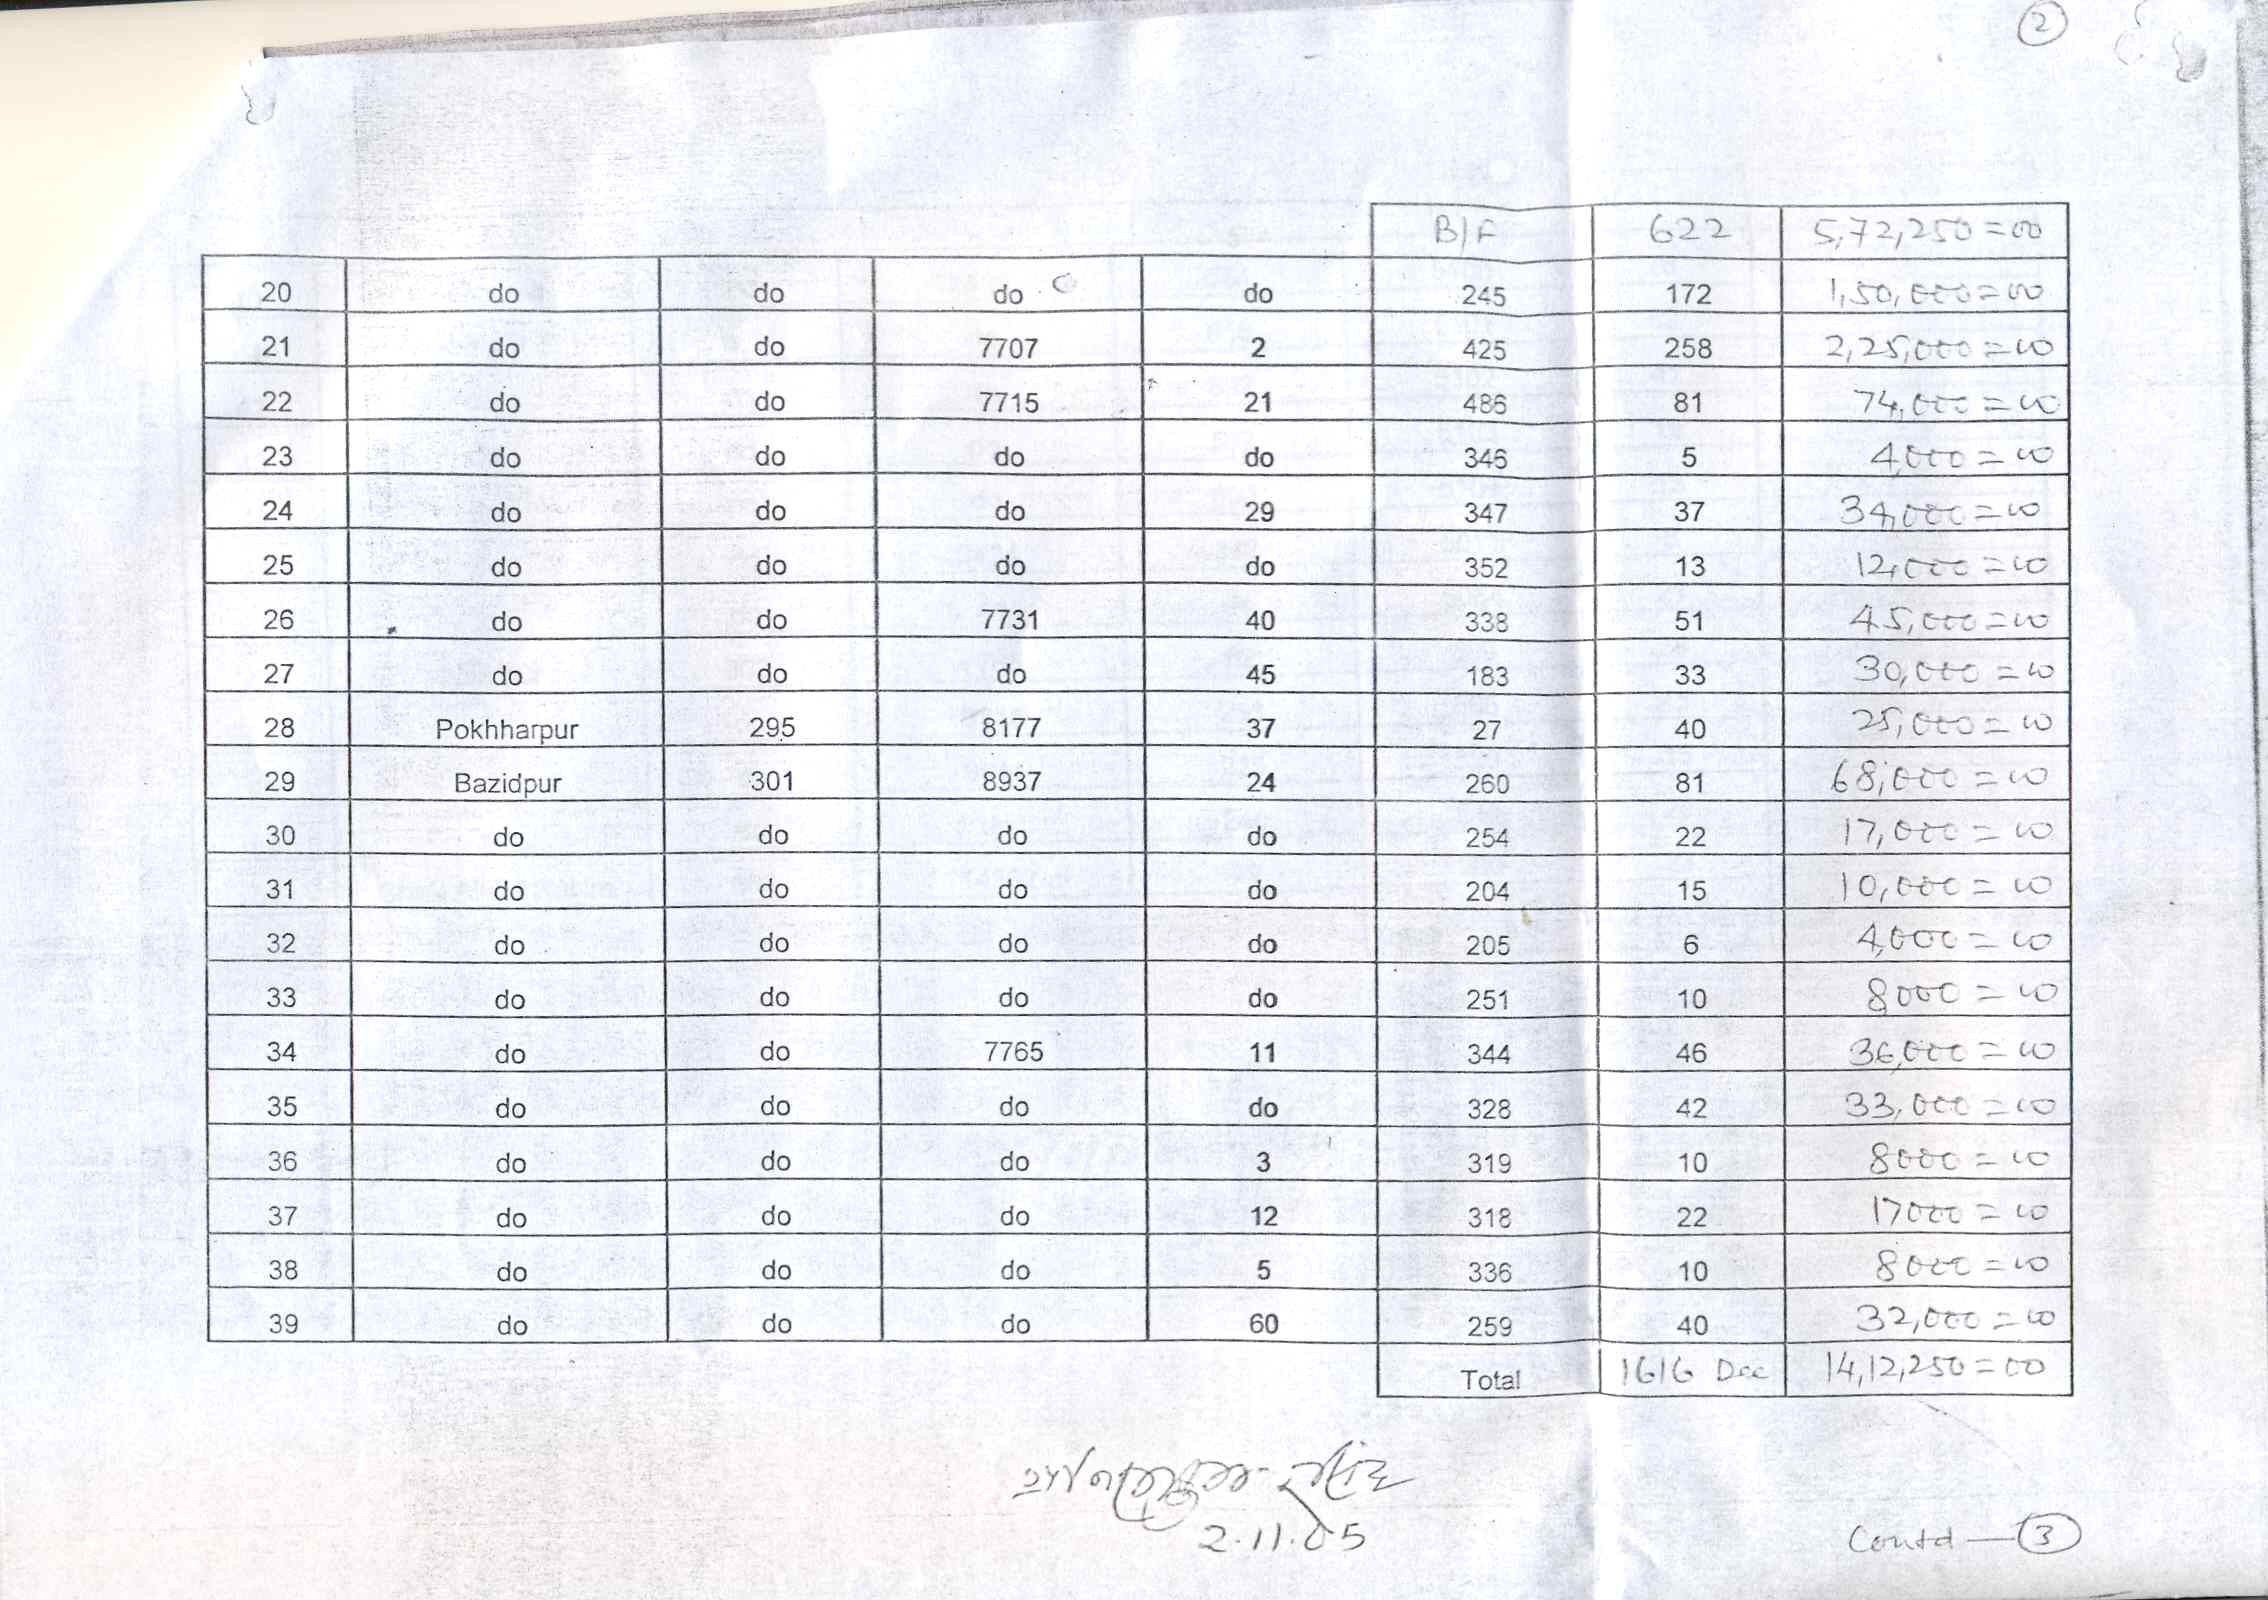 2
B/F 622 5,72,250=00
20 do do do do 245 172 1,50,000=00
21 do do 7707 2 425 258 2,25,000=00
22 do do 7715 21 486 81 74,000=00
23 do do do do 346 5 4,000=00
24 do do do 29 347 37 34,000=00
25 do do do do 352 13 12,000=00
26 do do 7731 40 338 51 45,000=00
27 do do do 45 183 33 30,000=00
28 Pokhharpur 295 8177 37 27 40 25,000=00
29 Bazidpur 301 8937 24 260 81 68,000=00
30 do do do do 254 22 17,000=00
31 do do do do 204 15 10,000=00
32 do do do do 205 6 4,000=00
33 do do do do 251 10 8000=00
34 do do 7765 11 344 46 36,000=00
35 do do do do 328 42 33,000=00
36 do do do 3 319 10 8000=00
37 do do do 12 318 22 17000=00
38 do do do 5 336 10 8000=00
39 do do do 60 259 40 32,000=00
Total 1616 Dec 14,12,250=00
2.11.05
Contd — 3